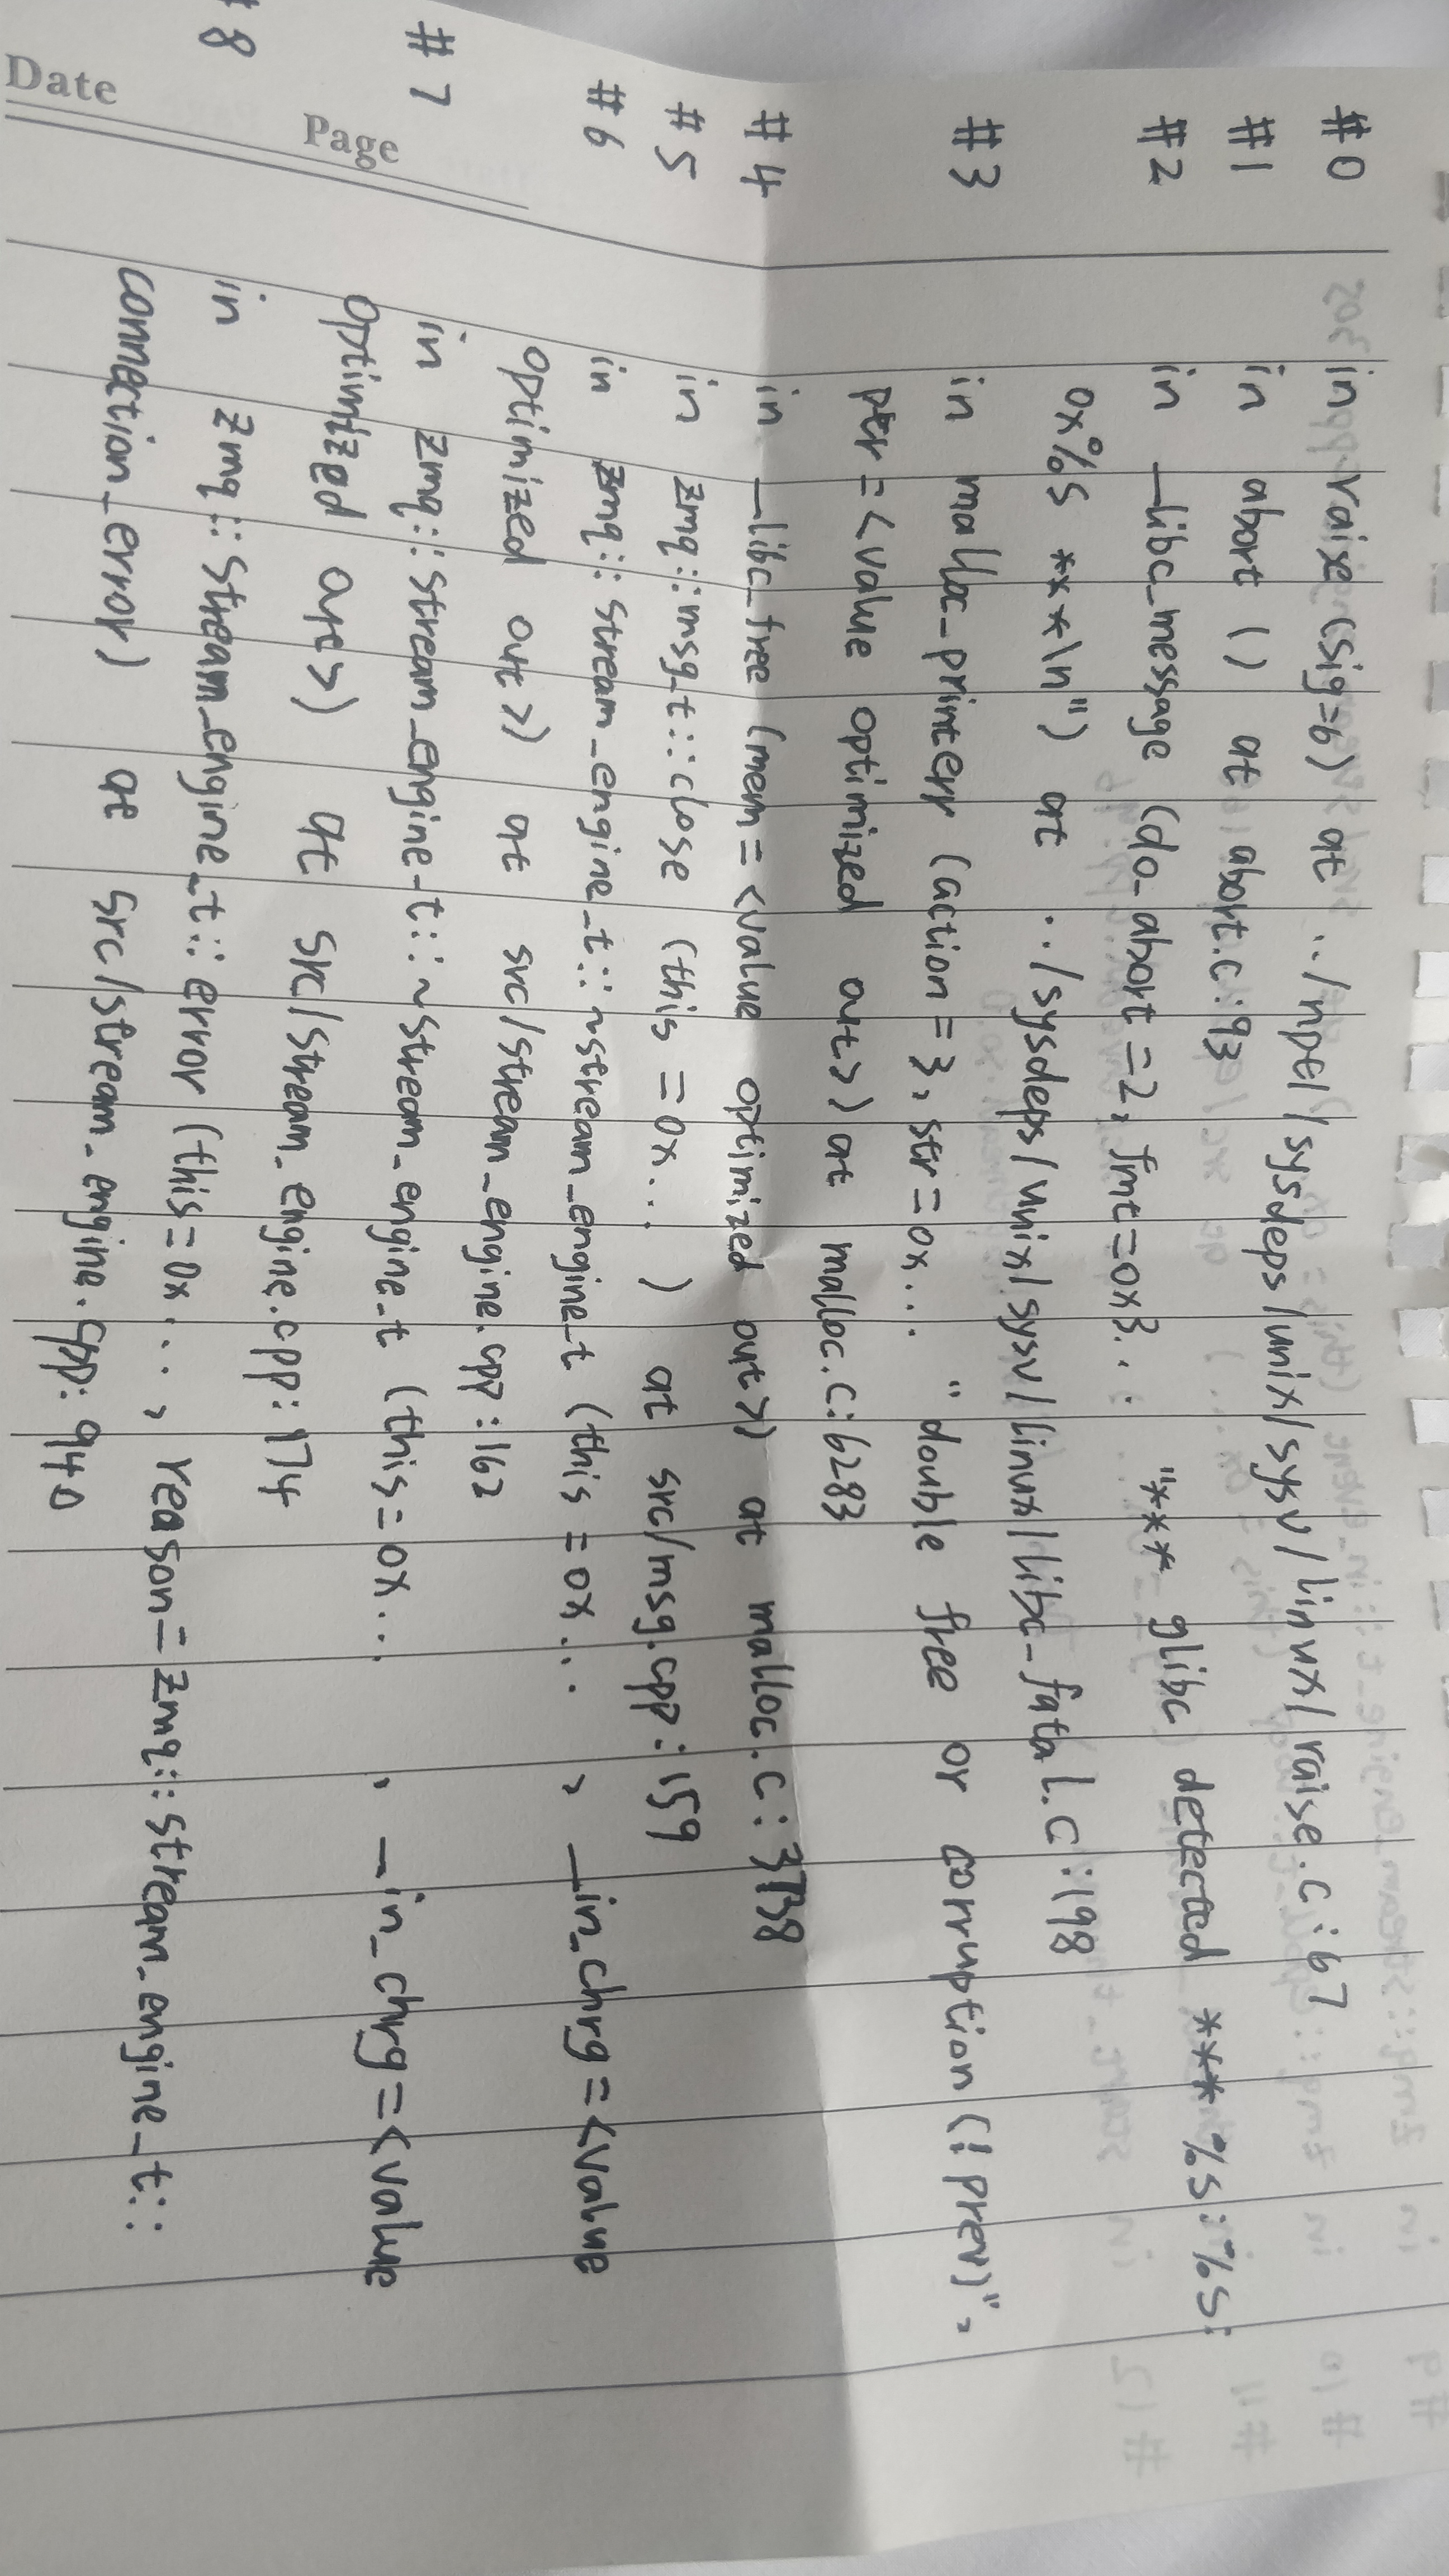 #0 in raise (sig=6) at ../nptl/sysdeps/unix/sysv/linux/raise.c:67
#1 in abort () at abort.c:93
#2 in __libc_message (do_abort=2, fmt=0x3... "*** glibc detected *** %s: %s:
0x%s ***\n") at ../sysdeps/unix/sysv/linux/libc_fatal.c:198
#3 in malloc_printerr (action=3, str=0x... "double free or corruption (!prev)",
ptr=<value optimized out>) at malloc.c:6283
#4 in __libc_free (mem=<value optimized out>) at malloc.c:3738
#5 in zmq::msg_t::close (this=0x... ) at src/msg.cpp:159
#6 in zmq::stream_engine_t::~stream_engine_t (this=0x... , __in_chrg=<value
optimized out>) at src/stream_engine.cpp:162
#7 in zmq::stream_engine_t::~stream_engine_t (this=0x... , __in_chrg=<value
optimized out>) at src/stream_engine.cpp:174
#8 in zmq::stream_engine_t::error (this=0x..., reason=zmq::stream_engine_t::
connection_error) at src/stream_engine.cpp:940
Page
Date